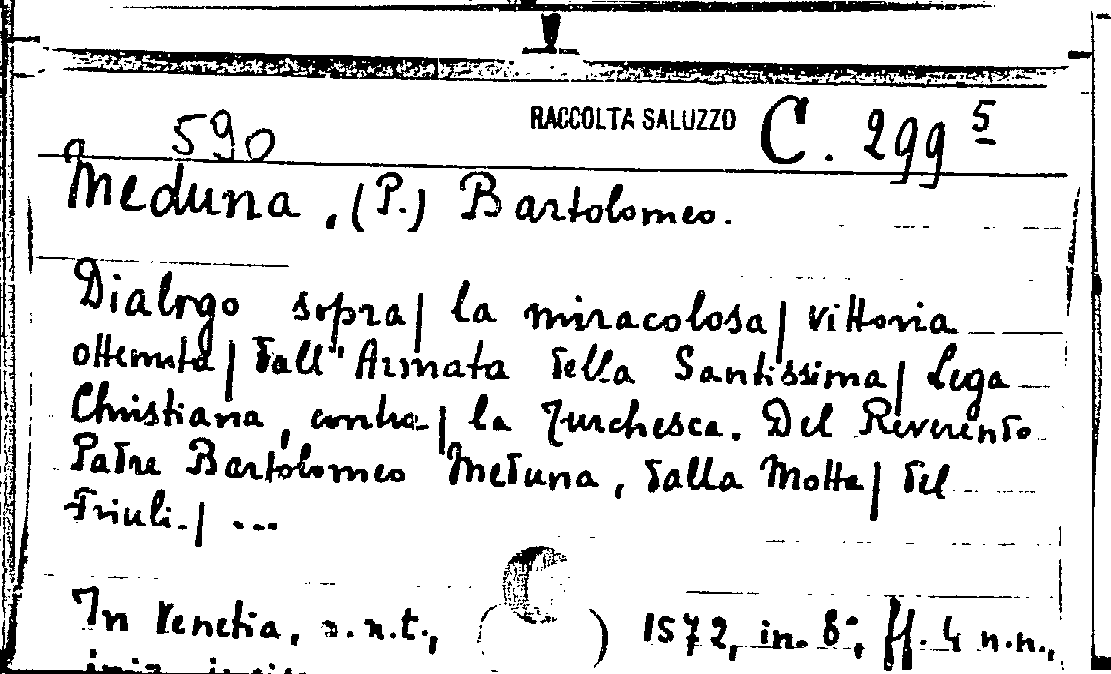 590 RACCOLTA SALUZZO C. 299 5
Meduna, (P.) Bartolomeo.
Dialogo sopra| la miracolosa| vittoria
ottenuta| dall'Armata della Santissima| Lega
Christiana, contra-| la Turchesca. Del Reverendo
Padre Bartolomeo Meduna, dalla Motta| del
Friuli.| ...
In Venetia, s.n.t., ( ) 1572, in-8°, ff. 4 n.n.,